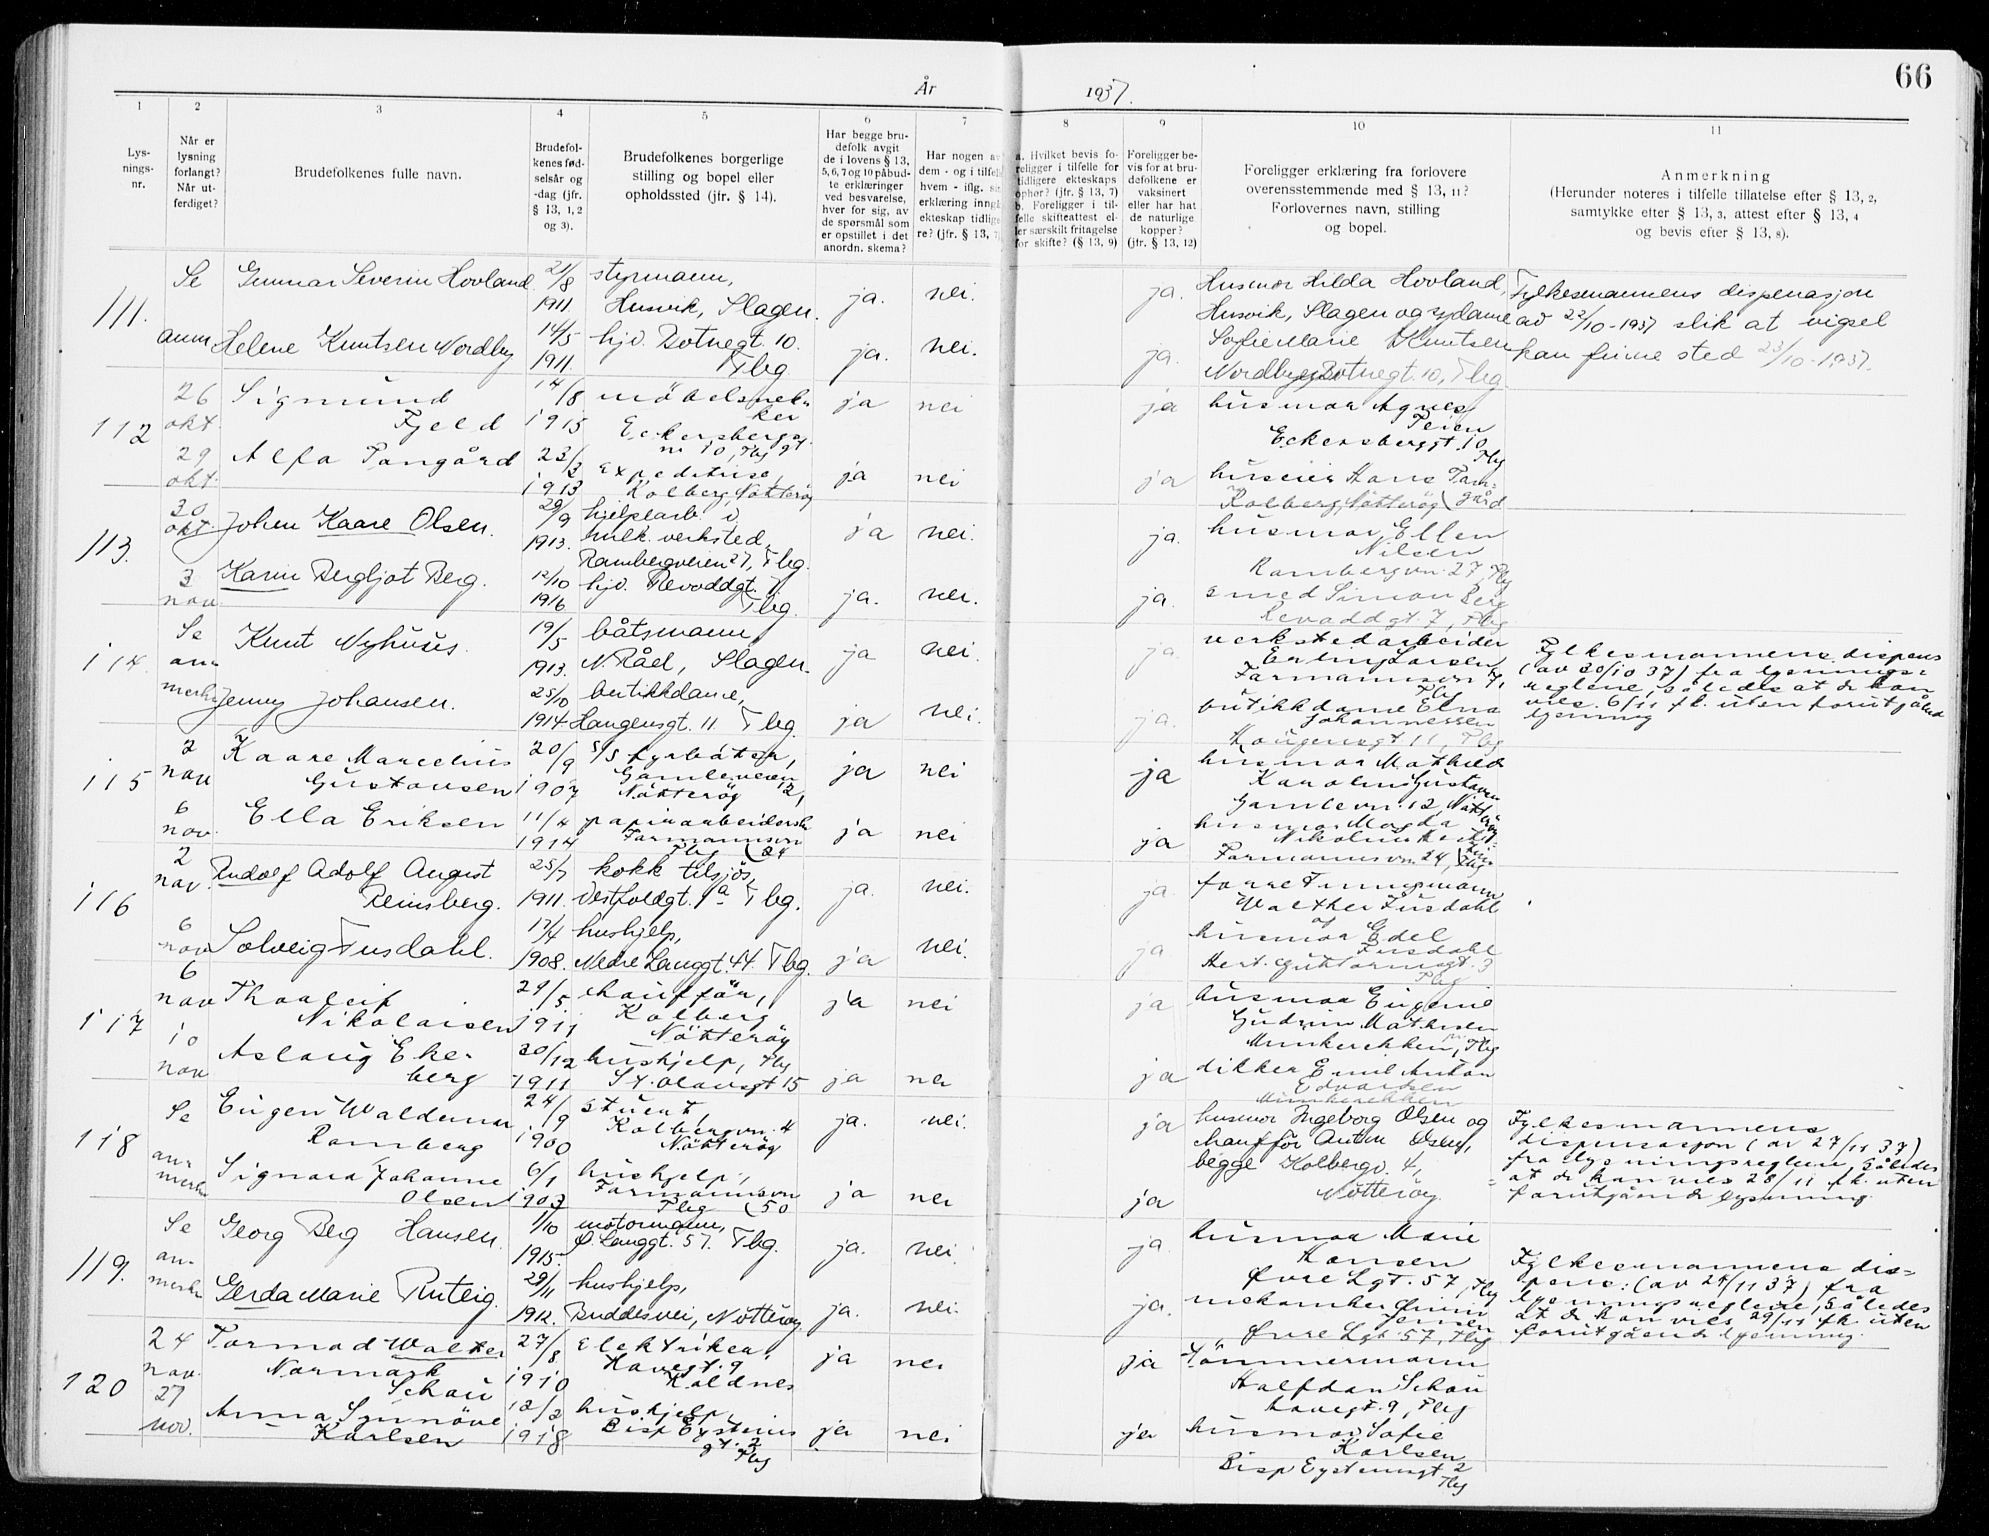 66
År 1937.
1 2 3 4 5 6 7 8 9 10 11
Lys-
nings-
nr.
Når er
lysning
forlangt?
Når ut-
ferdiget?
Brudefolkenes fulle navn.
Brudefol-
kenes fød-
selsår og
-dag (jfr.
§ 13, 1, 2
og 3).
Brudefolkenes borgerlige
stilling og bopel eller
opholdssted (jfr. § 14).
Har begge bru-
defolk avgit
de i lovens § 13,
5, 6, 7 og 10 påbud-
te erklæringer
ved besvarelse,
hver for sig, av
de spørsmål som
er opstillet i det
anordn. skema?
Har nogen av
dem - og i tilfelle
hvem - iflg. sin
erklæring inngå
ekteskap tidlige-
re? (jfr. § 13, 7)
a. Hvilket bevis fo-
religger i tilfelle for
tidligere ekteskaps
ophør? (jfr. § 13, 7)
b. Foreligger i til-
felle skifteattest el-
ler særskilt fritagelse
for skifte? (§ 13, 9)
Foreligger be-
vis for at bru-
defolkene er
vaksinert
eller har hat
de naturlige
kopper?
(jfr. § 13, 12)
Foreligger erklæring fra forlovere
overensstemmende med § 13, 11?
Forlovernes navn, stilling
og bopel.
Anmerkning
(Herunder noteres i tilfelle tillatelse efter § 13, 2,
samtykke efter § 13, 3, attest efter § 13, 4
og bevis efter § 13, 8).
111.
Se
anm
Gunnar Severin Hovland
21/8
1911.
styrmann,
Husvik, Slagen.
ja. nei. ja.
Husmor Hilda Hovland,
Husvik, Slagen og sydame
Fylkesmannens dispensasjon
av 22/10-1937 slik at vigsel
kan finne sted 23/10-1937.
Helene Knutsen Nordby
14/5
1911.
hjv. Rotnegt. 10.
Tbg.
ja. nei. ja.
Sofie Marie Knutsen
Nordby Rotnegt. 10, Tbg
112
26
okt.
29
okt.
Sigmund
Fjeld
14/8
1915
möbelsnek-
ker
Eckersbergs
nr 10, Tbg gt
ja nei ja
husmor Agnes
Teien
Eckersberggt. 10
Tbg
Alfa Tangård
23/3
1913
Expeditrise,
Kolberg, Nötteröy
ja nei ja
huseier Hans Tan-
gård
Kolberg, Nötteröy
113.
30
okt.
3
nov.
Johen Kaare Olsen.
29/9
1913.
hjelpearb. i
mek. verksted,
Rambergveien 27, Tbg.
ja nei. ja.
husmor, Ellen
Nilsen
Rambergvn. 27, Tbg
Karin Bergljot Berg.
12/10
1916
hjv. Revaddgt. 7.
Tbg.
ja. nei. ja.
smed Simon Berg
Revaddgt. 7, Tbg
114.
Se
an-
merkn
Knut Nyhuus.
19/5
1913.
båtsmann,
N. Råel, Slagen.
ja nei. ja.
verkstedarbeider
Erling Larsen
Farmannsvn 7,
Tbg
Fylkesmannens dispens
(av 30/10 37) fra lysnings-
reglene, således at de kan
vies 6/11 fk. uten forutgående
lysning
Jenny Johansen.
25/10
1914.
butikkdame,
Haugensgt. 11. Tbg.
ja nei. ja.
butikkdame Elna
Johannessen
Haugensgt 11, Tbg
115
2
nov
6
nov.
Kaare Marcelius
Gustavsen
20/9
1907
s/s fyrböter,
Gamleveien 12,
Nötteröy
ja nei ja
husmor Mathilde
Karoline Gustavsen
Gamlevn. 12, Nötteröy
Ella Eriksen
11/4
1914
papirarbeiderske
Farmannsvn
Tbg (24
ja nei ja
husmor Magda
Nikoline
Farmannsvn 24, Tbg
116
2
nov
6
nov
Rudolf Adolf August
Reinsberg.
25/7
1911.
kokk tilsjös,
Vestfoldgt. 1a Tbg.
ja. nei. ja.
Walther Fusdahl
og
Solveig Fusdahl.
17/4
1908.
hushjelp,
Nedre Langgt. 44. Tbg.
ja nei. ja
husmor Edel
Fusdahl
Hert. Guttormsgt. 3
Tbg
117
6
nov
10
nov
Thoaleif
Nikolaisen
29/5
1911
chaufför,
Kolberg
Nötteröy
ja nei ja
husmor Eugenie
Gudrun Mathisen
Munkerekken, Tbg
Aslaug Eke-
berg
20/12
1911
hushjelp, Tbg
St. Olavsgt 15
ja nei ja
dikker Emil Anton
Edvardsen
Munkerekken
118
Se
an-
merkn
Eugen Waldemar
Ramberg
24/9
1900
stuert,
Kolbergvn. 4
Nötteröy
ja. nei. ja
husmor Ingeborg Olsen og
chauffør Anton Olsen,
begge Kolbergv. 4,
Nøtterøy.
Fylkesmannens
dispensasjon (av 27/11 37)
fra lysningsreglene, således
at de kan vies 28/11 fk. uten
forutgående lysning.
Signora Johanne
Olsen
6/1
1903
hushjelp,
Farmannsvn
Tbg (50
ja nei ja
119.
Se
an-
merkn
Georg Berg Hansen.
1/10
1915.
motormann,
Ø. Langgt. 57. Tbg.
ja. nei. ja.
husmor Marie
Hansen
Övre Lgt. 57, Tbg
Fylkesmannens dis-
pens. (av 29/11 37) fra
lysningsreglene, således
at de kan vies 29/11 fk. uten
forutgående lysning.
Gerda Marie Ruteig.
29/11
1912.
hushjelp,
Buddesvei, Nøtterøy.
ja. nei. ja.
mekaniker
Jensen
Övre Lgt. 57, Tbg
120
24
nov.
27
nov.
Tormod Walter
Normark
Schau
27/8
1910
Elektriker,
Havegt. 9
Kaldnes
ja nei ja
tömmermann
Halfdan Schau
Havegt. 9, Tbg
Anna Synnöve
Karlsen
12/2
1918
hushjelp,
Bisp Eysteins
gt. 2
Tbg
ja nei ja
husmor Sofie
Karlsen
Bisp Eysteinsgt 2
Tbg